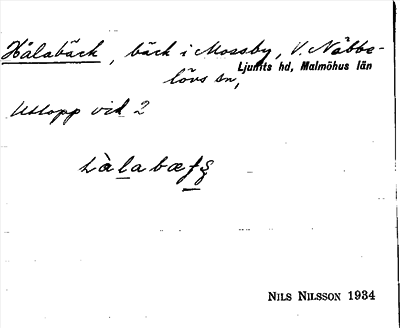 Hålabäck, bäck i Mossby, V. Näbbe-
Ljunits hd, Malmöhus län
lövs sn,
Utlopp vid 2
NILS NILSSON 1934